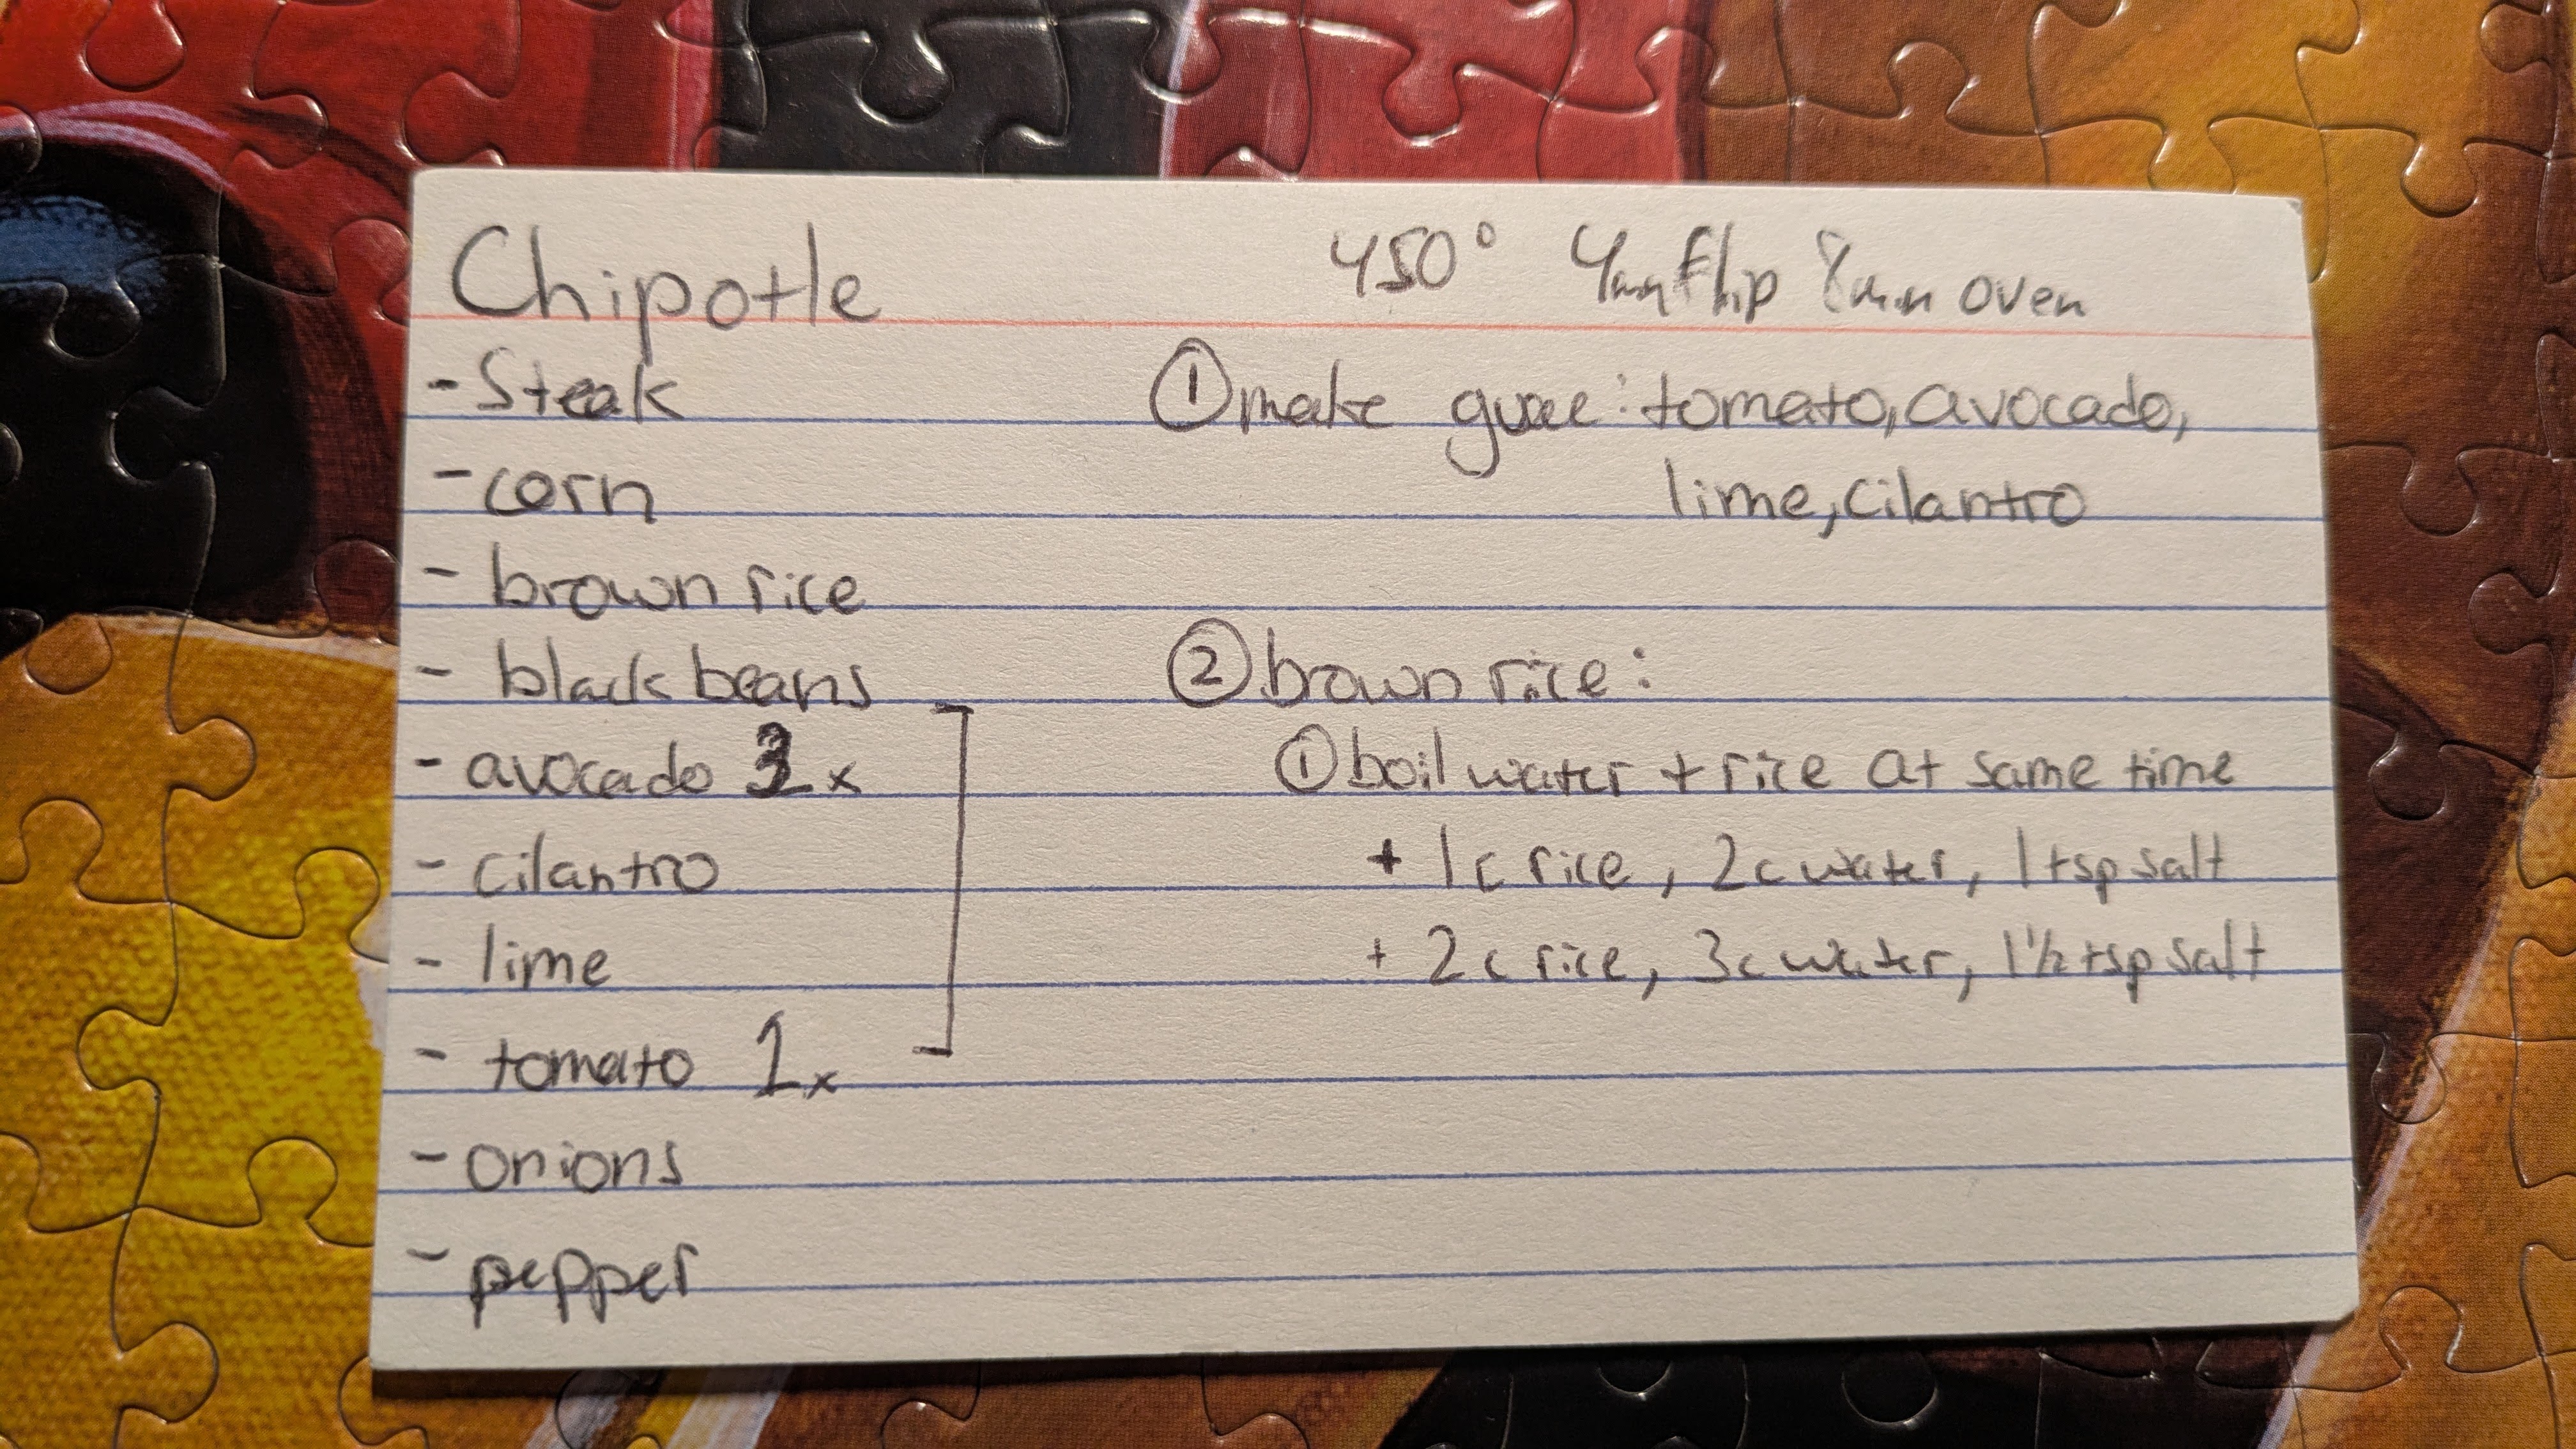 Chipotle
- Steak
- corn
- brown rice
- black beans
- avocado 3x
- cilantro
- lime
- tomato 1x
- onions
- pepper
450° 4min Flip 8min oven
① make guac: tomato, avocado,
lime, cilantro
② brown rice:
① boil water + rice at same time
+ 1c rice, 2c water, 1 tsp salt
+ 2c rice, 3c water, 1 1/2 tsp salt